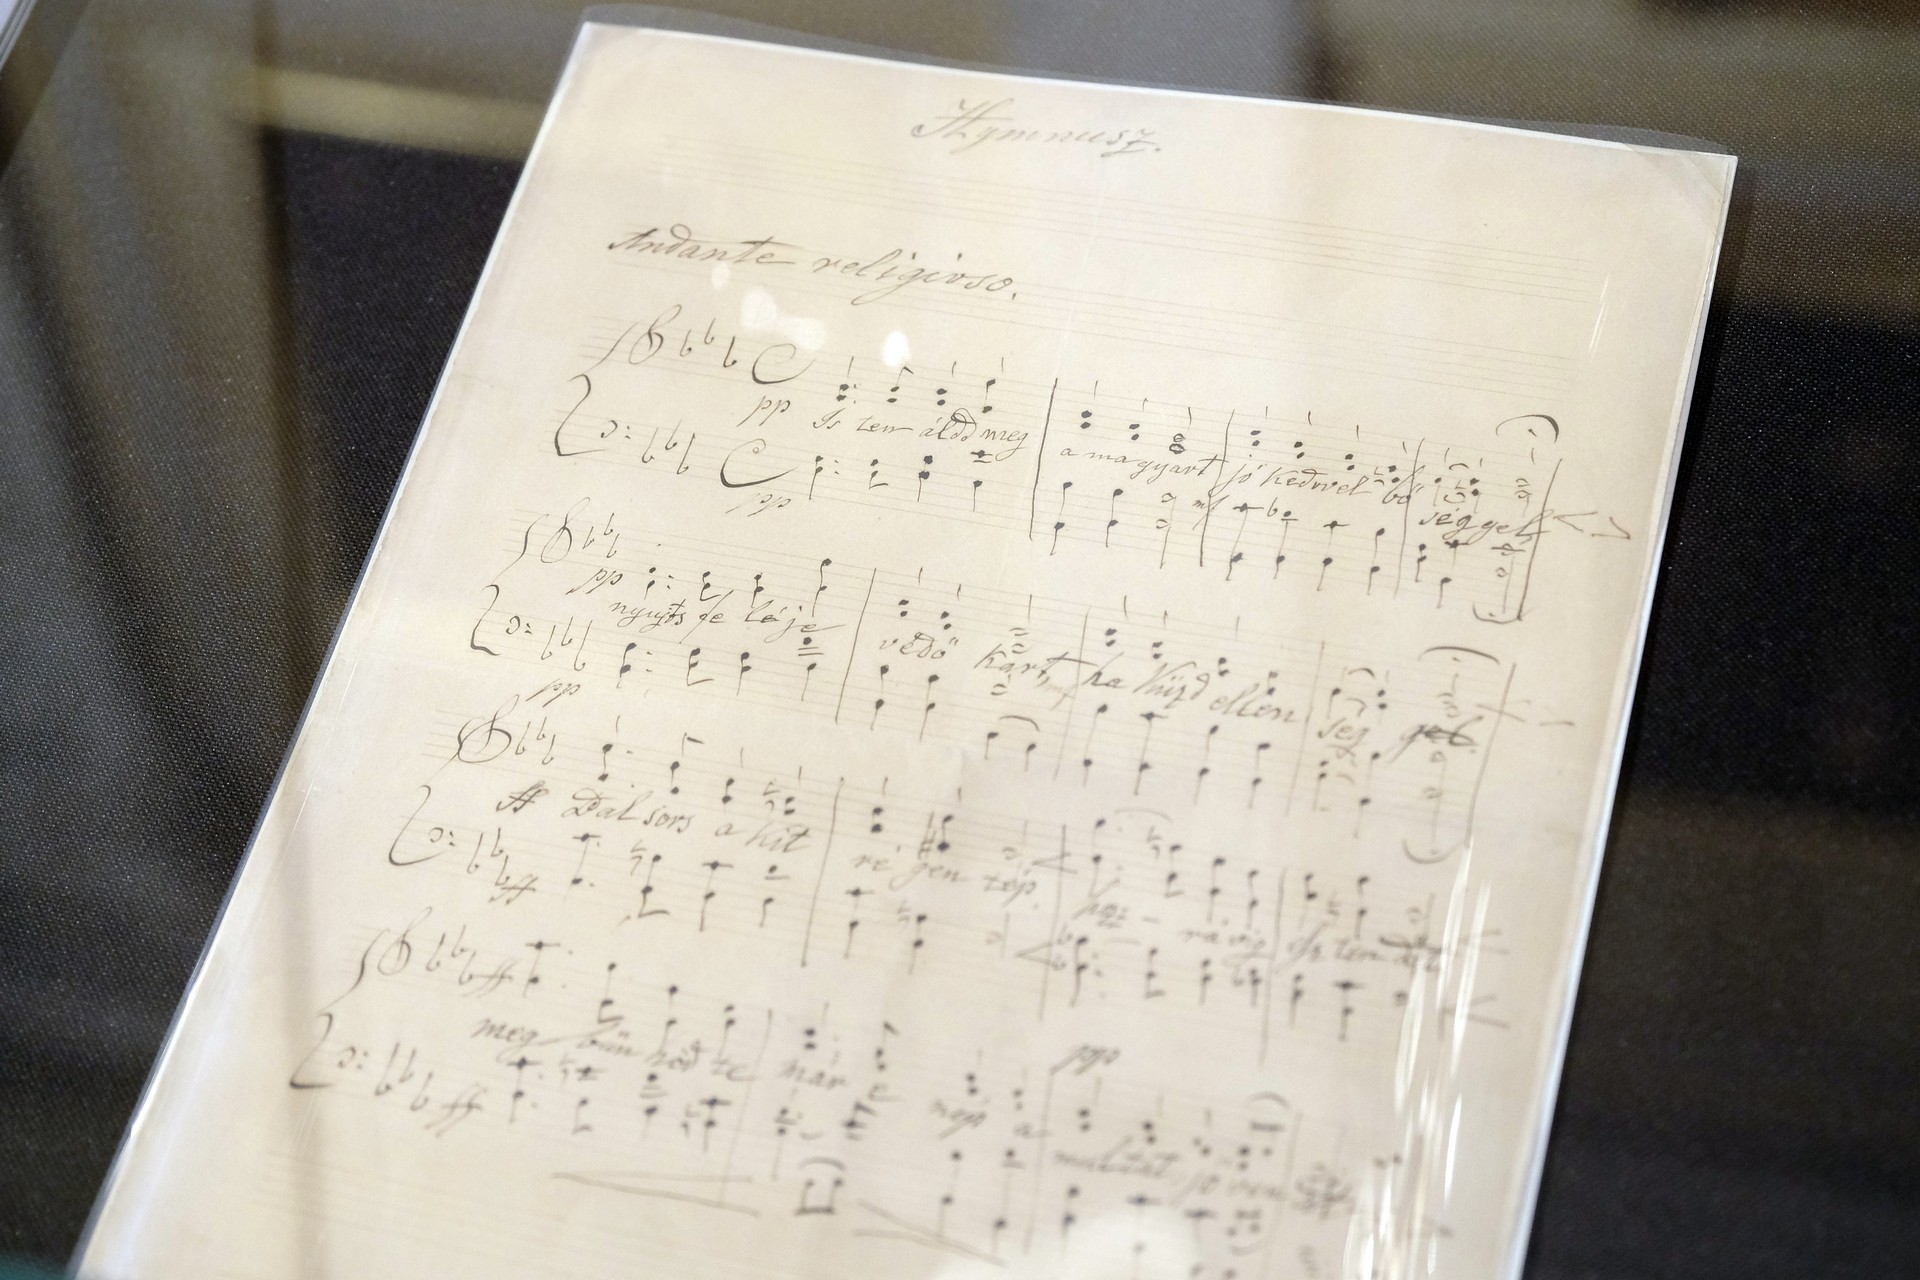 Hymnusz.
Andante religioso.
pp Is ten áldd meg a magyart jó kedvvel bő séggel
pp mf
pp nyujts fe léje védő kart, mf ha küzd ellen ség gel.
pp
ff Bal sors a kit ré gen tép, hozz rá víg Is ten
ff
ff meg bűn hőd te már e nép a multat, jö ven
ff
ppp